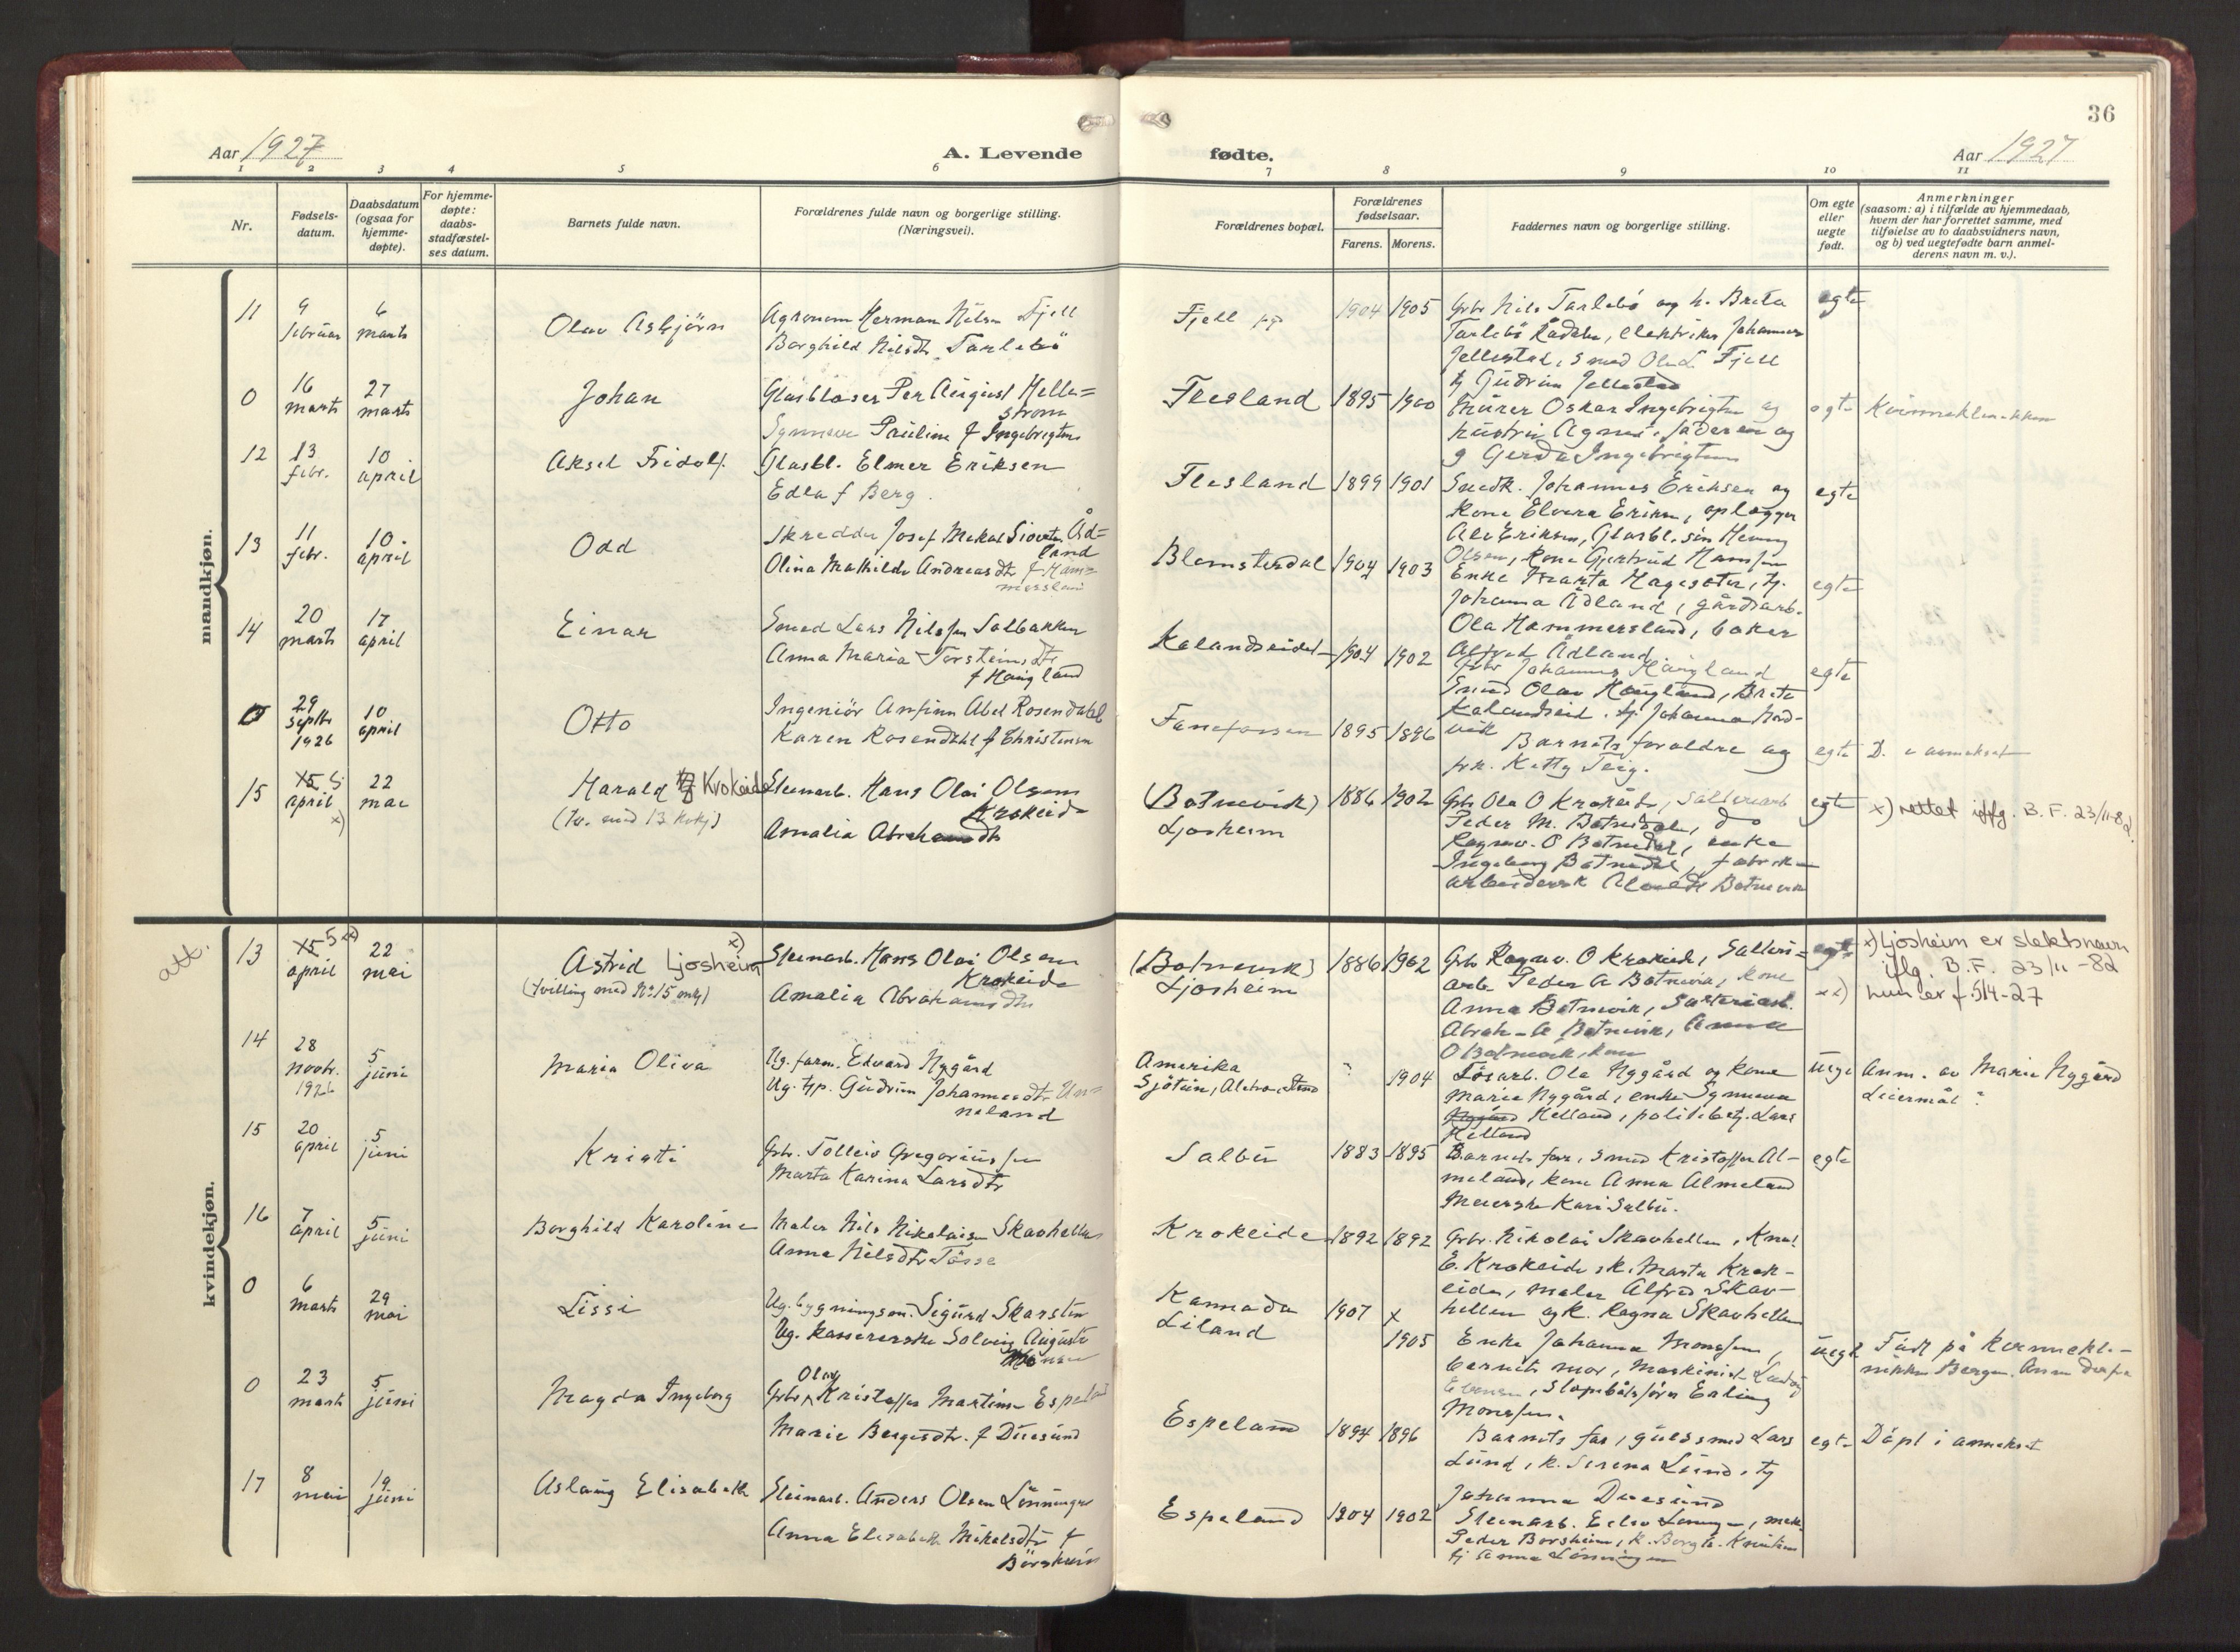 36
Aar 1927
A. Levende
fødte.
Aar 1927
1 2 3 4 5 6 7 8 9 10 11
Nr.
Fødsels-
datum.
Daabsdatum
(ogsaa for
hjemme-
døpte).
For hjemme-
døpte:
daabs-
stadfæstel-
ses datum.
Barnets fulde navn.
Forældrenes fulde navn og borgerlige stilling.
(Næringsvei).
Forældrenes bopæl.
Forældrenes
fødselsaar.
Farens. Morens.
Faddernes navn og borgerlige stilling.
Om egte
eller
uegte
født.
Anmerkninger
(saasom: a) i tilfælde av hjemmedaab,
hvem der har forrettet samme, med
tilføielse av to daabsvidners navn,
og b) ved uegtefødte barn anmel-
derens navn m. v.).
mandkjøn.
11
9
februar
6
marts
Olav Asbjörn
Agronom Herman Nilsen Fjell
Borghild Nilsdtr. Tarlebö
Fjell
1904 1905
Gbr Nils Tarlebö og h. Brita
Tarlebö Rådalen, elektriker Johannes
Jellestad, smed Ole L Fjell
tj Gudrun Jellestad
egte
0
16
marts
27
marts
Johan
Glasblaser Per August Helle=
strøm
Synneve Pauline f Ingebrigtsen
Flesland
1895 1900
Murer Oskar Ingebrigtsen og
hustru Agnes,
g Gerda Ingebrigtsen
egte
12
13
febr.
10
april
Aksel Fridolf.
Glasbl. Elmer Eriksen
Edla f Berg.
Flesland
1899 1901
Snedk. Johannes Eriksen og
Kone Elvera Eriksen, oplægger
Alv Eriksen, Glasbl. sön Henry
Olsen, Kone Gjertrud Hansen
egte
13
11
febr.
10.
april
Odd
Skredder Josef Mekal Sivertsen Åd=
land
Olina Mathilde Andreasdtr f Ham=
mersland
Blomsterdal
1904 1903
Enke Marta Hageseter, tj.
Johanna Ådland, gårdsarb.
Ola Hammersland, baker
Alfred Ådland
egte
14
20
marts
17
april
Einar
Smed Lars Nilssen Solbakken
Anna Maria Torsteinsdtr
f Haugland
Kalandseidet
1904 1902
Gbr Johannes Haugland
Smed Olav Haugland, Brita
Kalandseid. tj. Johanna Nord-
vik
egte
0
29
septbr
1926
10
april
Otto
Ingeniör Anfinn Abel Rosendahl
Karen Rosendahl f Christensen
Fanefossen
1895 1896
Barnets foreldre og
frk. Ketty Teig.
egte
D. i annekset
15
15 5
april
x)
22
mai
Harald Krokeide
(Tv. med 13 kvkj)
Steenarb. Hans Olai Olsen
Krokeide
Amalia Abrahamsdtr
(Botnevik)
Ljosheim
1886 1902
Gbr Ola O Krokeide, Salteriarb
Peder M. Botnedal, do
Ragnv. O Botnedal, enke
Ingeborg Botnedal, fabrik-
arbeiderske Botnevik
egte
x) rettet iflg. B. F. 23/11-82
kvindekjøn.
att.
13
15 5 xx)
april
22
mai
Astrid Ljosheim x)
(tvilling med No 15 mkj)
Steenarb. Hans Olai Olsen
Krokeide
Amalia Abrahamsdtr
(Botnevik)
Ljosheim
1886 1902
Gbr Ragnv. O Krokeide, Salteri=
arb Peder A Botnevik, kone
Anna Botnevik, Salteriarb.
Abrah. A Botnevik, Anna
O Botnevik, kone
egte
x) Ljosheim er slektsnavn
iflg. B. F. 23/11-82
xx) hun er f. 5/4-27
14
28
novbr.
1926
5
juni
Maria Oliva
Ug. farm. Edvard Nygård
Ug. tjp. Gudrun Johannesdtr Un=
neland
Amerika
?
1904
Lösarb. Ola Nygård og kone
Marie Nygård, enke Synneva
Helland, politibetj. Lars
Helland
uegte
Anm. av Marie Nygård
Leiermål ?
15
20
april
5
juni
Kristi
Gbr. Tolleiv Gregoriussen
Marta Karina Larsdtr
Salbu
1883 1895
Barnets far, smed Kristoffer Al-
meland, kone Anna Almeland
Meierske Kari Salbu.
egte
16
7
april
5
juni
Borghild Karoline
Maler Nils Nikolaisen Skavhellen
Anna Nilsdtr Tösse
Krokeide
1892 1892
Gbr. Nikolai Skavhellen, Knut
E. Krokeide, k. Marta Krok-
eide, maler Alfred Skav-
hellen og k. Ragna Skavhellen
0
6
marts
29
mai
Lissi
Ug. bygningssn. Sigurd Skarstein
Ug. kassererske Solveig Auguste
Monsen
Kannada
Liland
1907 x
1905
Enke Johanna Monssen,
barnets mor, Maskinist Ludvig
Ebensen, Slepebåtförer Erling
Monssen.
uegte
Födt på kvinnekli-
nikken Bergen. Anm
0
23
marts
5
juni
Magda Ingeborg
Gbr. Olav Kristoffer Martinsen Espeland
Marie Bergesdtr. f Duesund
Espeland
1894 1896
Barnets far, guldsmed Lars
Lund, k. Serena Lund, tj
Johanna Duesund
egte
Döpt i annekset
17
8
mai
19
juni
Aslaug Elisabeth
Steinarb. Anders Olsen Lönningen
Anna Elisabeth Mikalsdtr f
Börsheim
Espeland
1904 1902
Steenarb.
Peder Borsheim, k.
tj Anna Lönningen